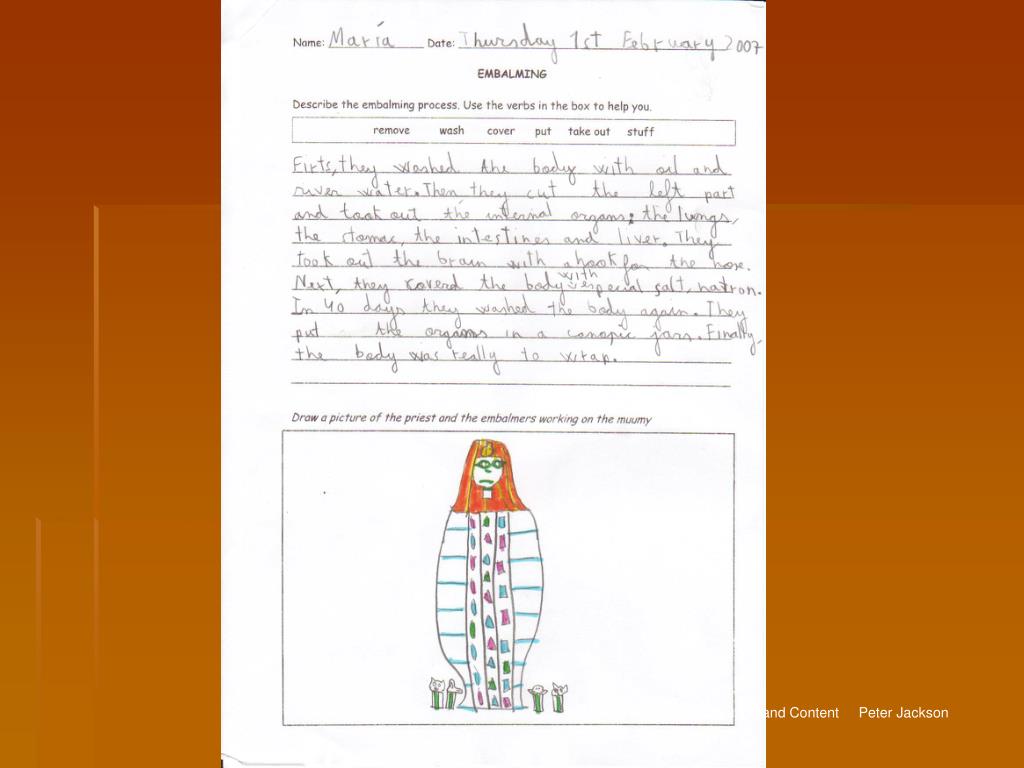 Name: María Date: Thursday 1st February 2007
EMBALMING
Describe the embalming process. Use the verbs in the box to help you.
remove wash cover put take out stuff
Firts, they washed the body with oil and
river water. Then they cut the left part
and took out the internal organs; the lungs,
the stomac, the intestines and liver. They
took out the brain with a hook for the nose.
Next, they coverd the body with especial salt, natron.
In 40 days they washed the body again. They
put the organs in a canopic jars. Finally,
the body was really to wrap.
Draw a picture of the priest and the embalmers working on the muumy
and Content Peter Jackson